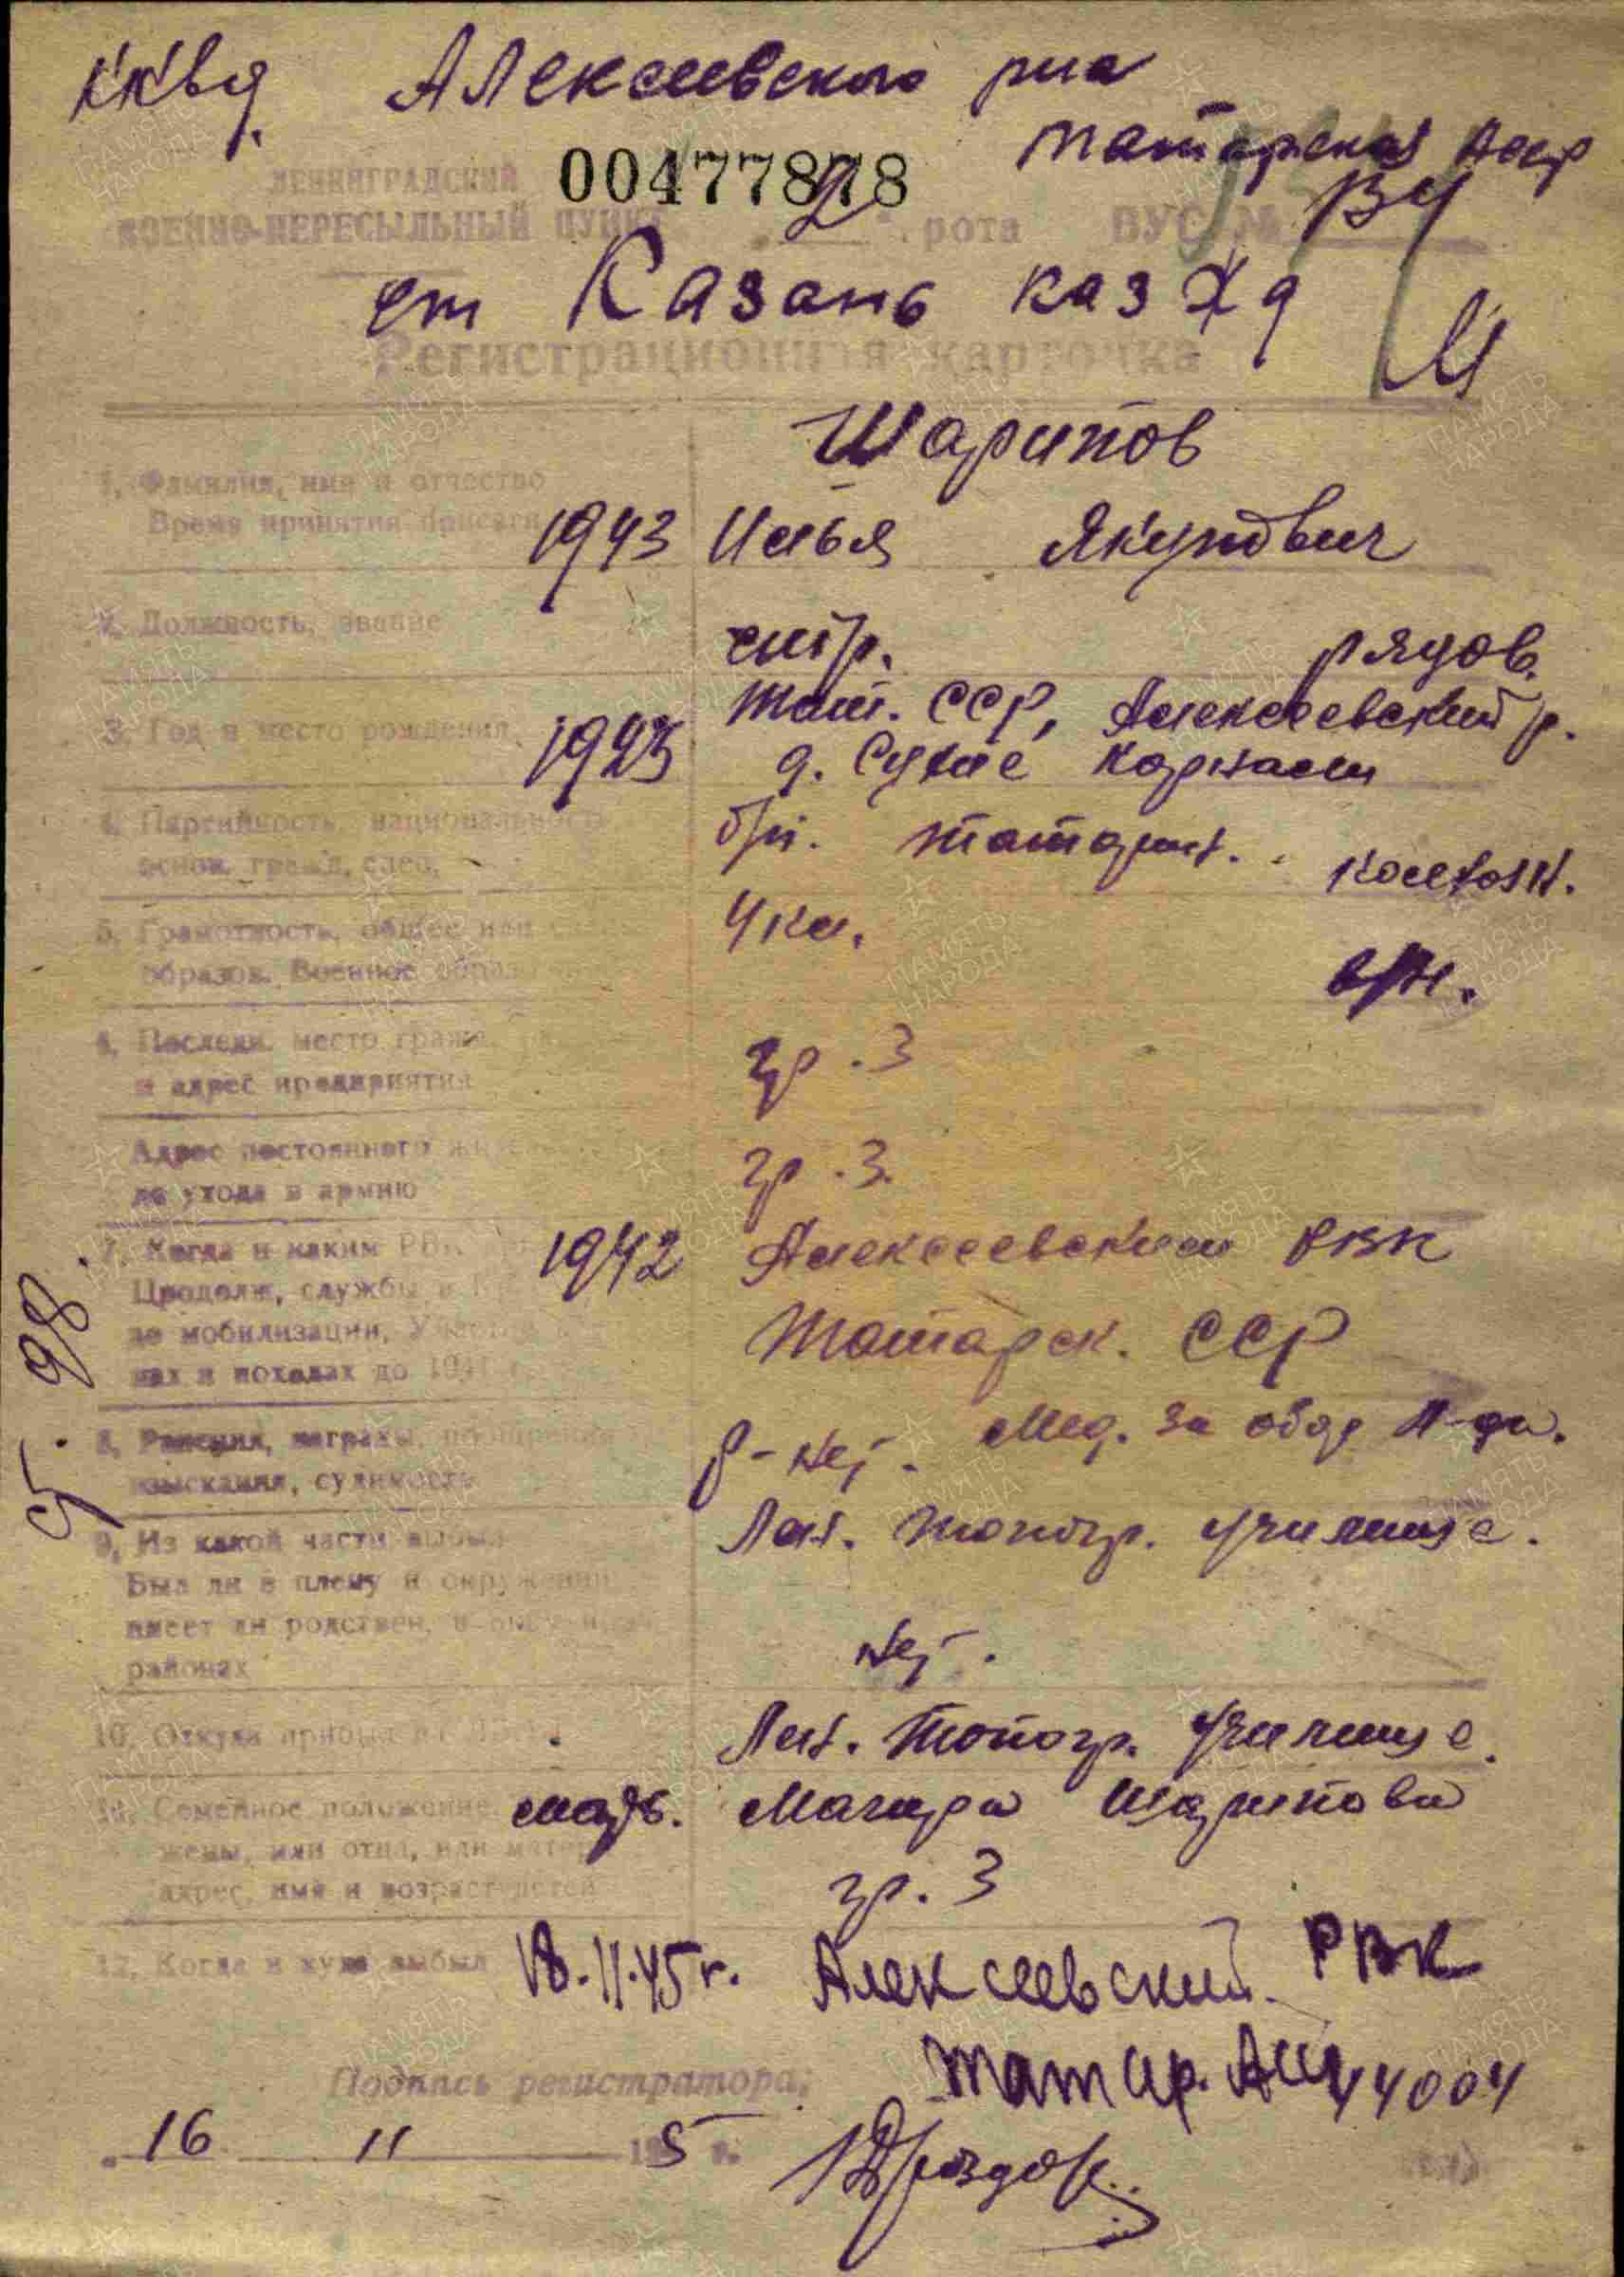 Алексеевского р-на
Татарская АССР
00477878
ЛЕНИНГРАДСКИЙ
ВОЕННО-ПЕРЕСЫЛЬНЫЙ ПУНКТ 2 рота ВУС №
ст Казань каз жд
Регистрационная карточка
Шарипов
1. Фамилия, имя и отчество
Время принятия присяги 1943 Илья Якупович
2. Должность, звание стр. рядов.
Тат. ССР, Алексеевский р.
3. Год и место рождения, 1923 д. Сухие Курнали
4. Партийность, национальность б/п. татарин. колхозн.
основ. гражд. спец.
5. Грамотность, общее или 4 кл.
образов. Военное образ в/н.
6. Последн. место гражд. гр. 3
и адрес предприятия
Адрес постоянного гр. 3.
до ухода в армию
7. Когда и каким РВК 1942 Алексеевским РВК
Продолж. службы в
до мобилизации, Татарск. ССР
нах и походах до 1941 г.
5. 98.
8. Ранения, награды, поощрения Р-нет. Мед. за обор Л-да.
взыскания, судимость
9. Из какой части выбыл Лен. топогр. училище.
Был ли в плену и окружении
имеет ли родствен. в районах нет.
10. Откуда прибыл Лен. Топогр. училище.
11. Семейное положение, мать. Магира Шарипова
жены, или отца, или матери
адрес, имя и возраст детей гр. 3
12. Когда и куда выбыл 18.11.45 г. Алексеевский РВК
Татар. АССР
44004
Подпись регистратора:
16 11 1945 г.